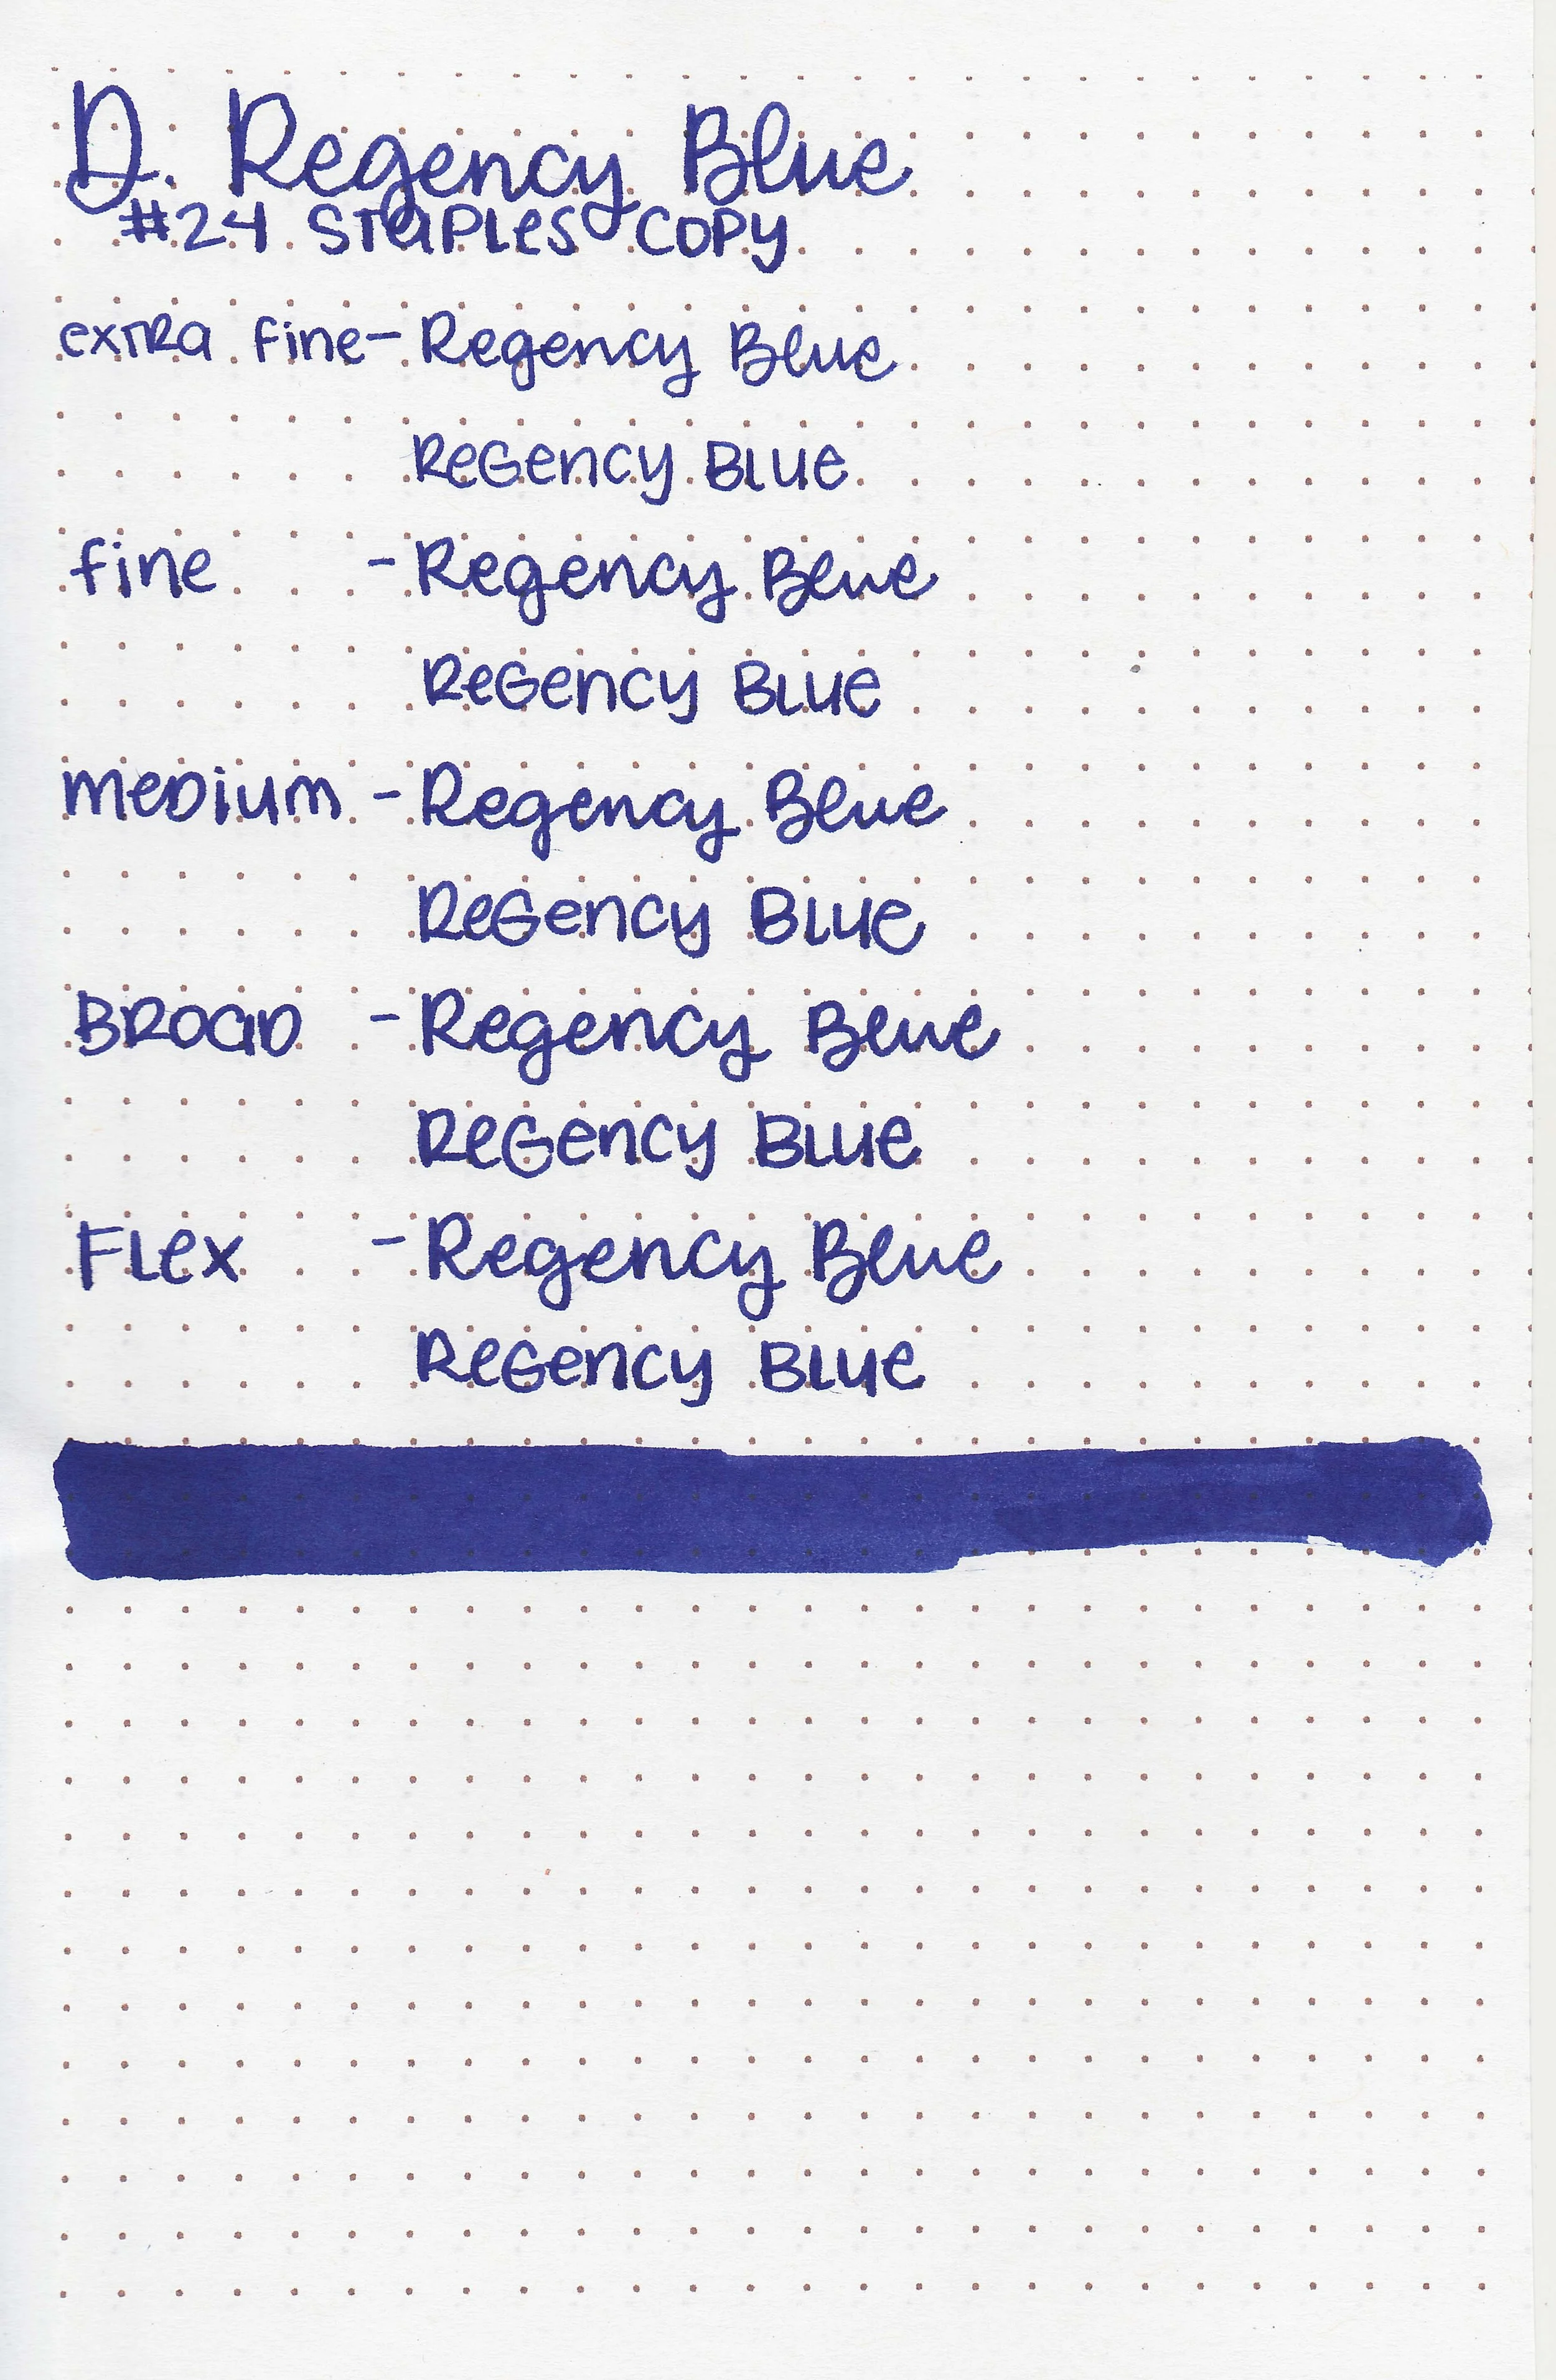 D. Regency Blue
#24 Staples Copy
extra fine - Regency Blue
Regency Blue
fine - Regency Blue
Regency Blue
medium - Regency Blue
Regency Blue
Broad - Regency Blue
Regency Blue
Flex - Regency Blue
Regency Blue